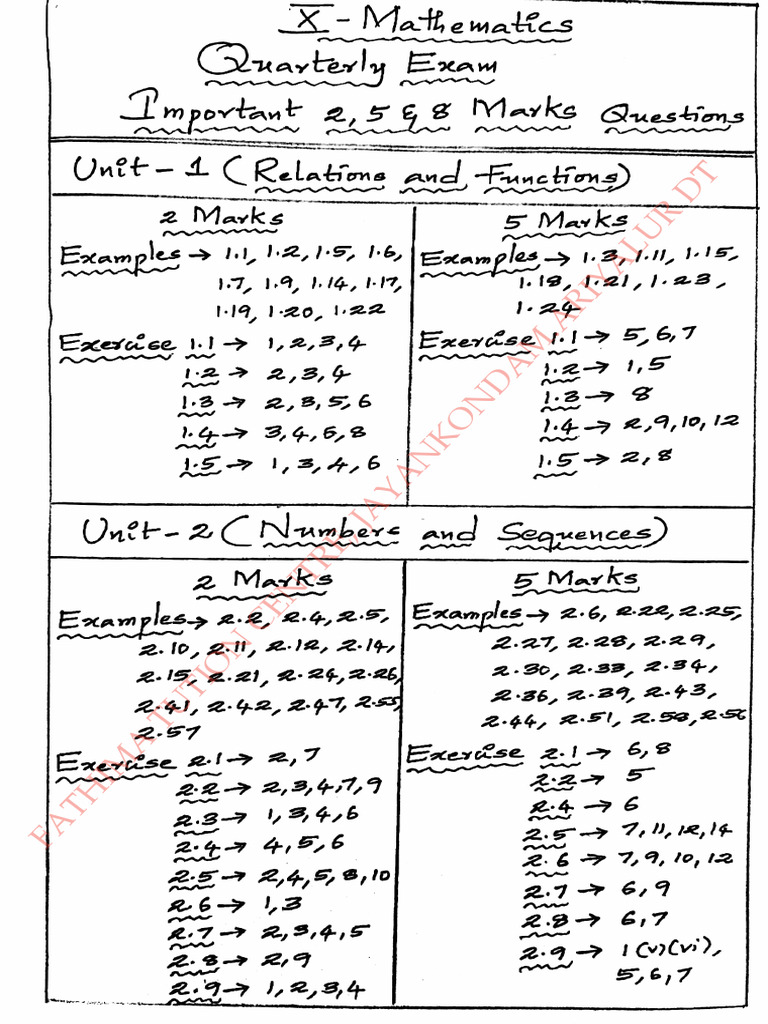 X - Mathematics
Quarterly Exam
Important 2, 5 & 8 Marks Questions
Unit - 1 (Relations and Functions)
2 Marks
Examples → 1.1, 1.2, 1.5, 1.6,
1.7, 1.9, 1.14, 1.17,
1.19, 1.20, 1.22
Exercise 1.1 → 1, 2, 3, 4
1.2 → 2, 3, 4
1.3 → 2, 3, 5, 6
1.4 → 3, 4, 5, 8
1.5 → 1, 3, 4, 6
5 Marks
Examples → 1.3, 1.11, 1.15,
1.18, 1.21, 1.23,
1.24
Exercise 1.1 → 5, 6, 7
1.2 → 1, 5
1.3 → 8
1.4 → 2, 9, 10, 12
1.5 → 2, 8
Unit - 2 (Numbers and Sequences)
2 Marks
Examples → 2.2, 2.4, 2.5,
2.10, 2.11, 2.12, 2.14,
2.15, 2.21, 2.24, 2.26,
2.41, 2.42, 2.47, 2.55,
2.57
Exercise 2.1 → 2, 7
2.2 → 2, 3, 4, 7, 9
2.3 → 1, 3, 4, 6
2.4 → 4, 5, 6
2.5 → 2, 4, 5, 8, 10
2.6 → 1, 3
2.7 → 2, 3, 4, 5
2.8 → 2, 9
2.9 → 1, 2, 3, 4
5 Marks
Examples → 2.6, 2.22, 2.25,
2.27, 2.28, 2.29,
2.30, 2.33, 2.34,
2.36, 2.39, 2.43,
2.44, 2.51, 2.53, 2.56
Exercise 2.1 → 6, 8
2.2 → 5
2.4 → 6
2.5 → 7, 11, 12, 14
2.6 → 7, 9, 10, 12
2.7 → 6, 9
2.8 → 6, 7
2.9 → 1 (v) (vi),
5, 6, 7
FATHIMA TUTION CENTRE, JAYANKONDAM ARIYALUR DT